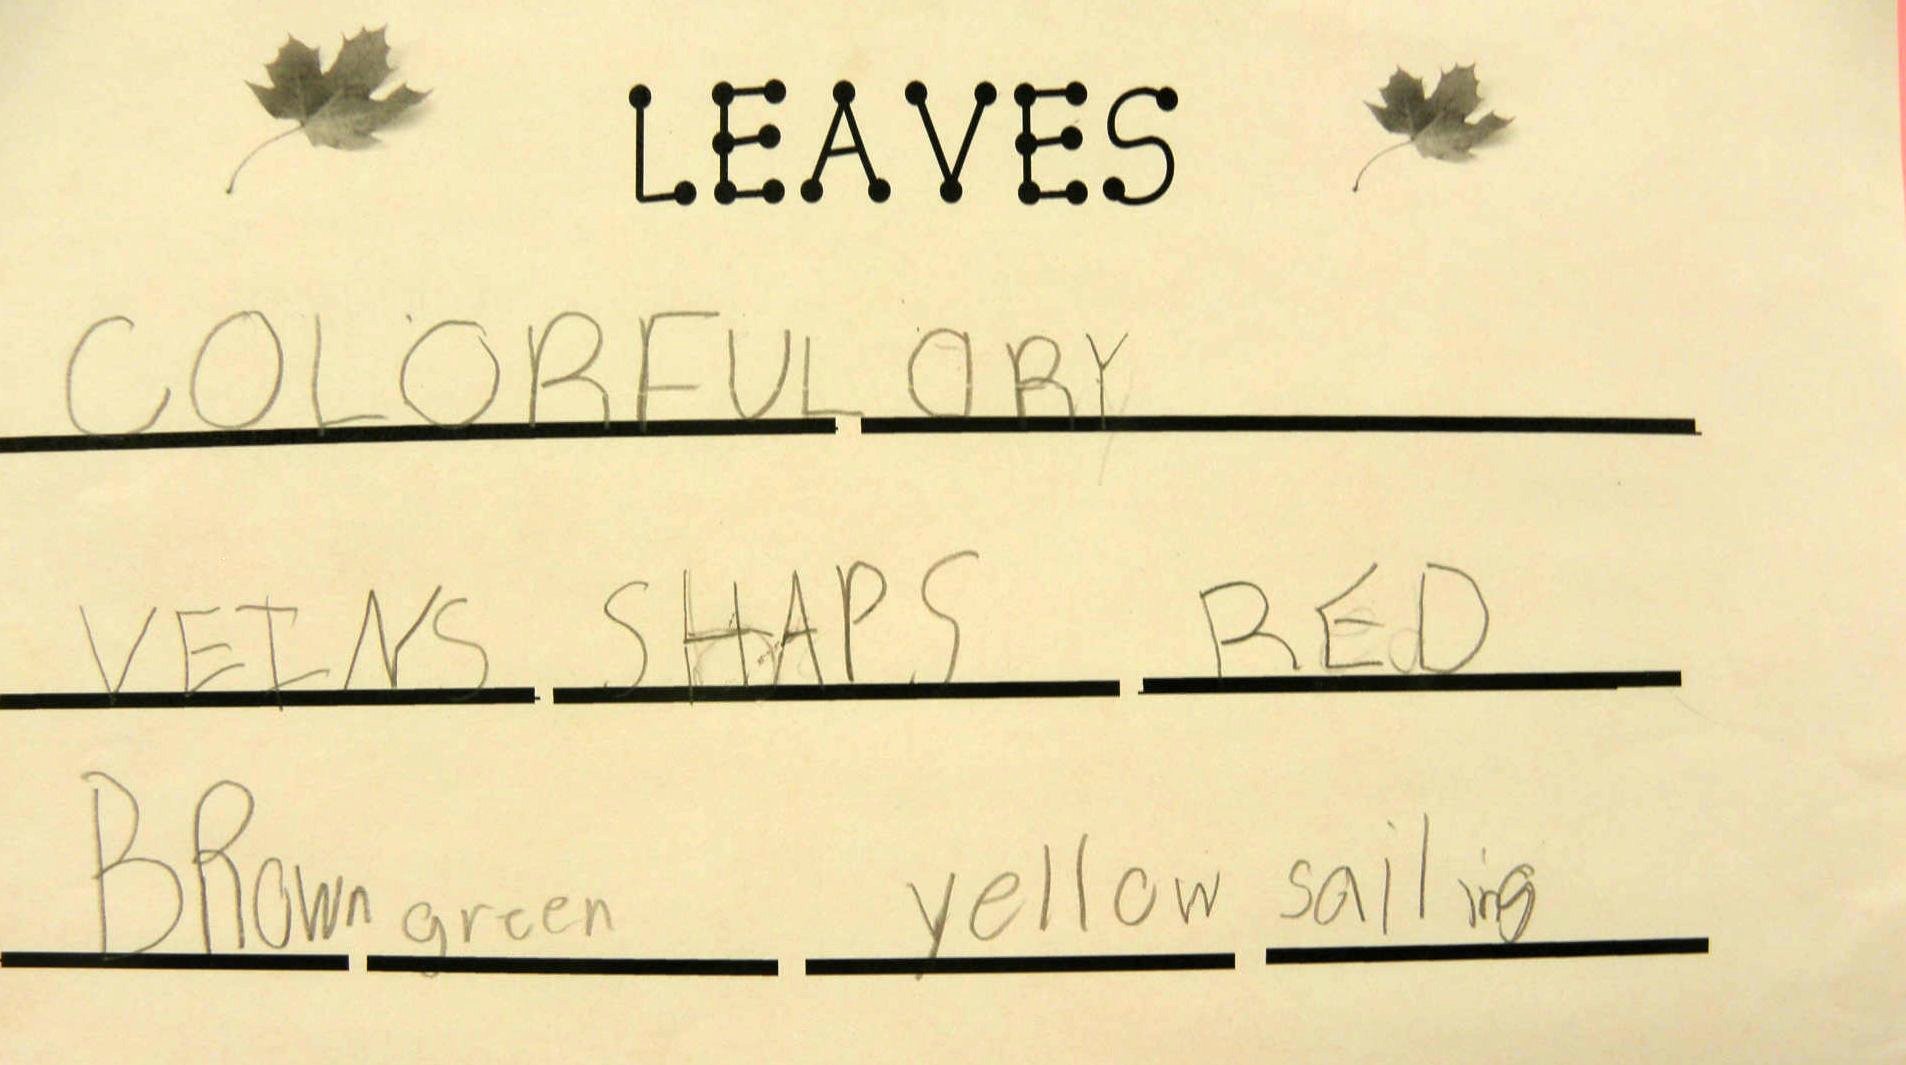 LEAVES
COLORFUL ORY
VEINS SHAPS RED
BROwn green yellow sailing